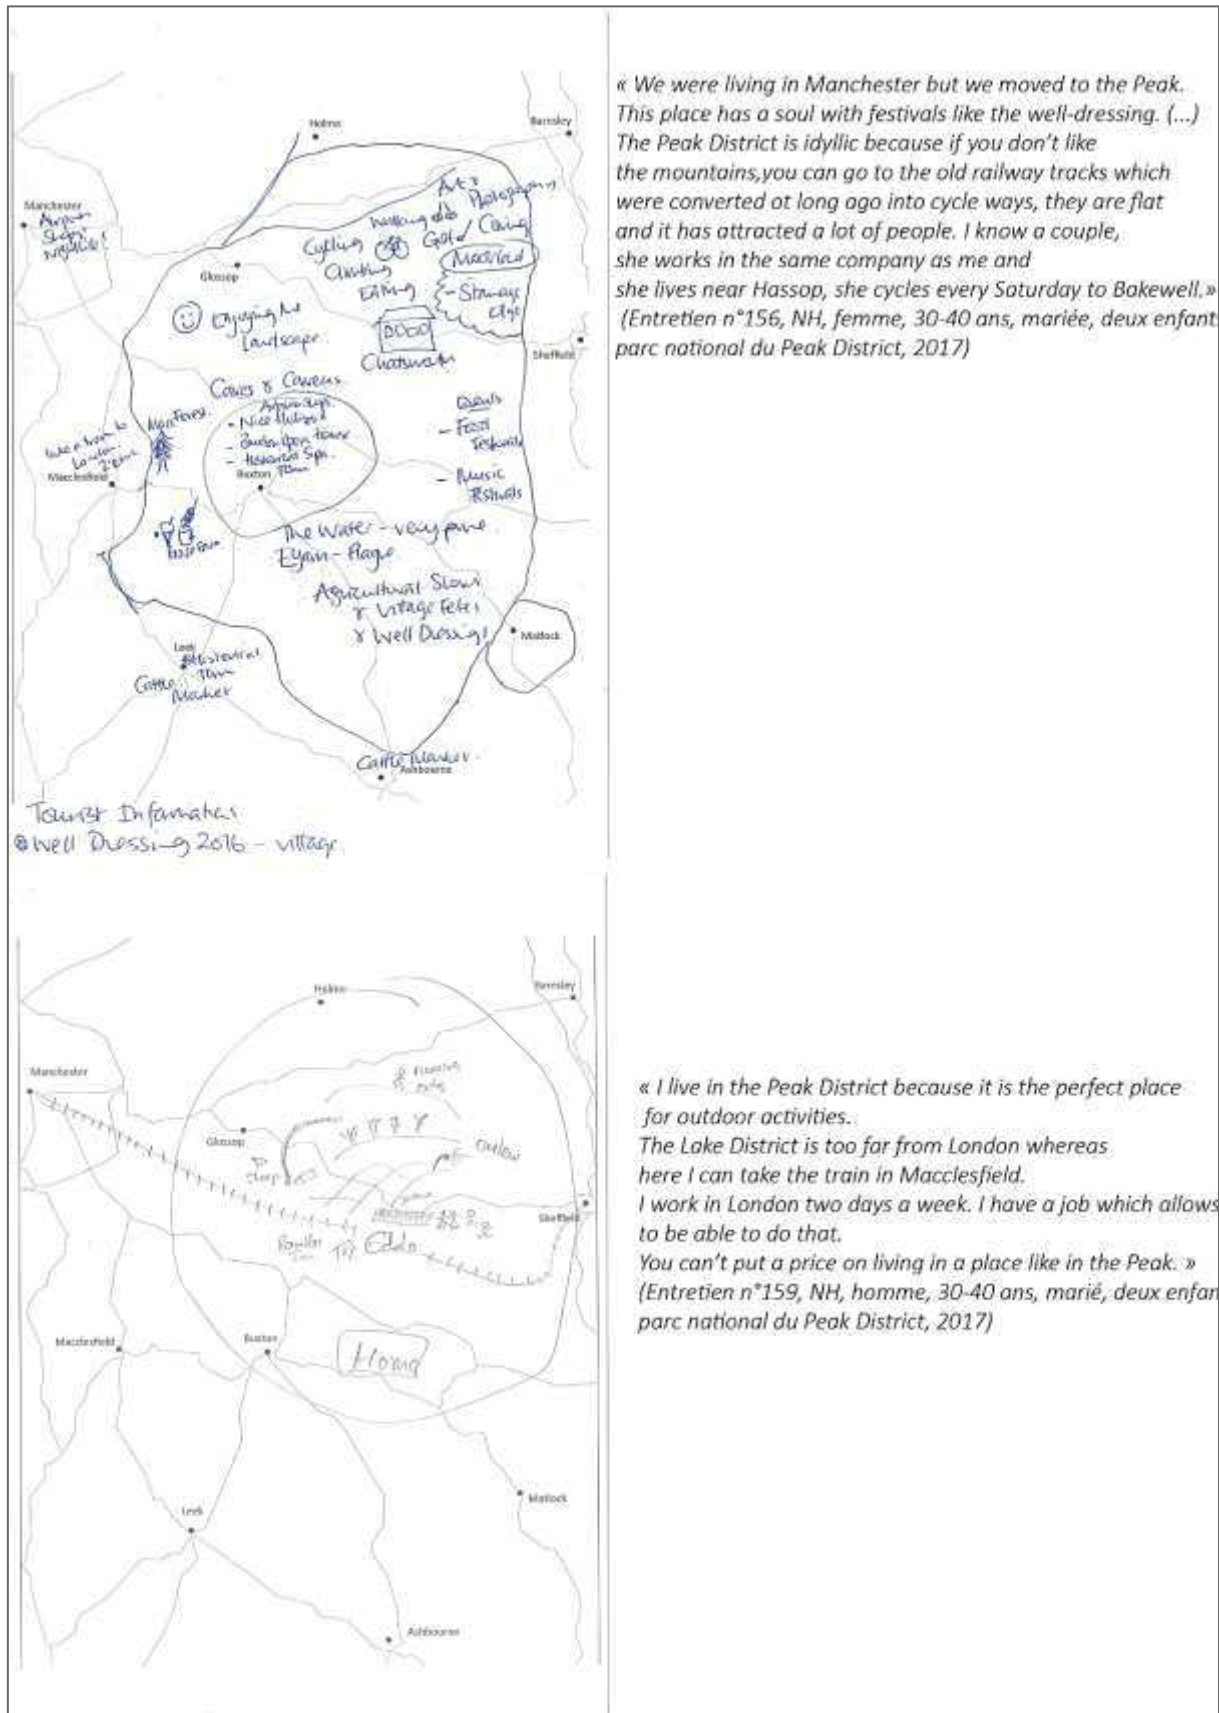 Holme
Barnsley
Manchester
Airport
Shops
Nightlife!
Art &
Photography
Walking
Cycling
Golf / Caving
Climbing
Eating
Glossop
Stanage
Edge
Enjoying the
Landscape
Chatsworth
Sheffield
Caves & Caverns
Forest
London
Macclesfield
Buxton
Town
Events
- Food
Festivals
- Music
Festivals
The Water - very pure
Eyam - Plague
Agricultural Shows
& Village Fetes
& Well Dressings
Matlock
Leek
Town
Cattle
Market
Cattle Market
Ashbourne
Tourist Information
Well Dressing 2016 - village
« We were living in Manchester but we moved to the Peak.
This place has a soul with festivals like the well-dressing. (...)
The Peak District is idyllic because if you don't like
the mountains,you can go to the old railway tracks which
were converted ot long ago into cycle ways, they are flat
and it has attracted a lot of people. I know a couple,
she works in the same company as me and
she lives near Hassop, she cycles every Saturday to Bakewell.»
(Entretien n°156, NH, femme, 30-40 ans, mariée, deux enfant
parc national du Peak District, 2017)
Holme
Barnsley
Manchester
Glossop
Sheffield
Macclesfield
Buxton
Home
Leek
Matlock
Ashbourne
« I live in the Peak District because it is the perfect place
for outdoor activities.
The Lake District is too far from London whereas
here I can take the train in Macclesfield.
I work in London two days a week. I have a job which allows
to be able to do that.
You can't put a price on living in a place like in the Peak. »
(Entretien n°159, NH, homme, 30-40 ans, marié, deux enfan
parc national du Peak District, 2017)